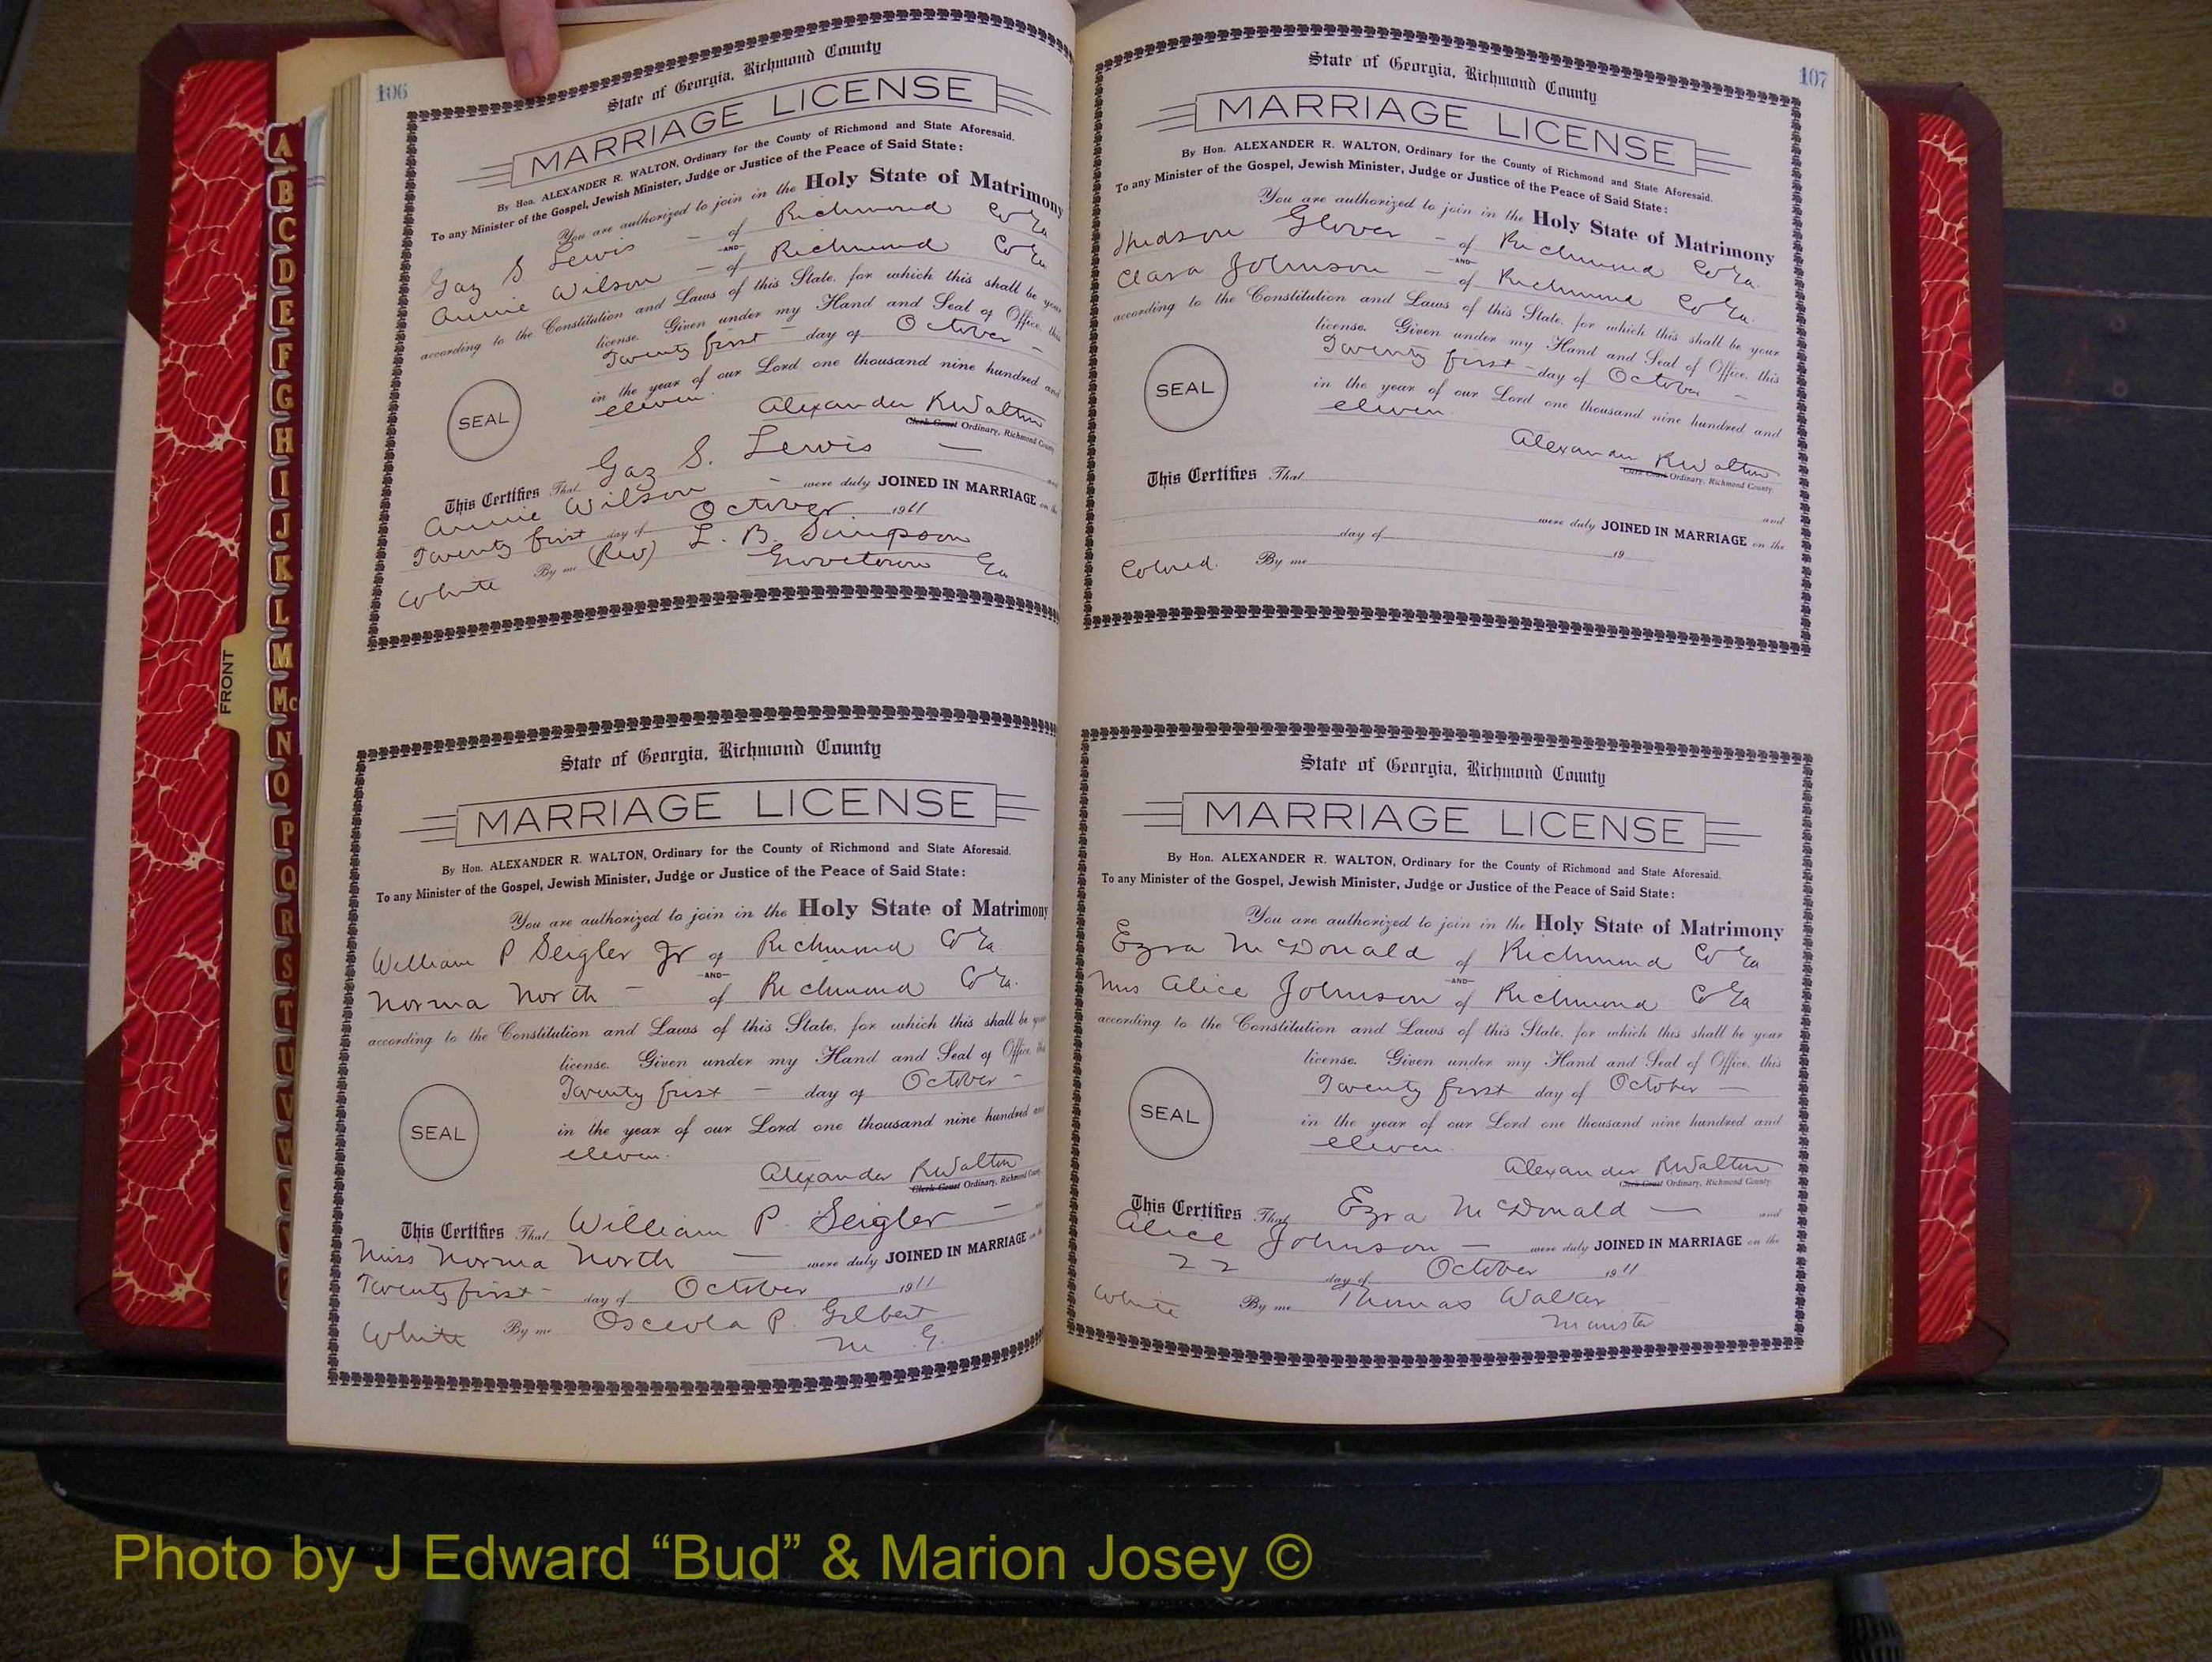 106
State of Georgia, Richmond County
MARRIAGE LICENSE
By Hon. ALEXANDER R. WALTON, Ordinary for the County of Richmond and State Aforesaid.
To any Minister of the Gospel, Jewish Minister, Judge or Justice of the Peace of Said State:
You are authorized to join in the Holy State of Matrimony
Gaz S Lewis - of Richmond Co Ga
-AND-
Annie Wilson - of Richmond Co Ga
according to the Constitution and Laws of this State, for which this shall be your
license. Given under my Hand and Seal of Office, this
Twenty first - day of October -
in the year of our Lord one thousand nine hundred and
eleven.
SEAL
Alexander R Walton
Clerk Court Ordinary, Richmond County
This Certifies That Gaz S. Lewis - and
Annie Wilson - were duly JOINED IN MARRIAGE on the
Twenty first day of October 1911
White By me (Rev) L. B. Simpson
Grovetown Ga
State of Georgia, Richmond County
MARRIAGE LICENSE
By Hon. ALEXANDER R. WALTON, Ordinary for the County of Richmond and State Aforesaid.
To any Minister of the Gospel, Jewish Minister, Judge or Justice of the Peace of Said State:
You are authorized to join in the Holy State of Matrimony
William P Seigler Jr of Richmond Co Ga
-AND-
Norma North - of Richmond Co Ga.
according to the Constitution and Laws of this State, for which this shall be your
license. Given under my Hand and Seal of Office, this
Twenty first - day of October -
in the year of our Lord one thousand nine hundred and
eleven.
SEAL
Alexander R Walton
Clerk Court Ordinary, Richmond County
This Certifies That William P. Seigler - and
Miss Norma North - were duly JOINED IN MARRIAGE on the
Twenty first - day of October 1911
White By me Osceola P. Gilbert
M. G.
107
State of Georgia, Richmond County
MARRIAGE LICENSE
By Hon. ALEXANDER R. WALTON, Ordinary for the County of Richmond and State Aforesaid.
To any Minister of the Gospel, Jewish Minister, Judge or Justice of the Peace of Said State:
You are authorized to join in the Holy State of Matrimony
Hudson Glover - of Richmond Co Ga.
-AND-
Clara Johnson - of Richmond Co Ga.
according to the Constitution and Laws of this State, for which this shall be your
license. Given under my Hand and Seal of Office, this
Twenty first - day of October -
in the year of our Lord one thousand nine hundred and
eleven
SEAL
Alexander R Walton
Clerk Court Ordinary, Richmond County.
This Certifies That
and
were duly JOINED IN MARRIAGE on the
day of 19
Colored. By me
State of Georgia, Richmond County
MARRIAGE LICENSE
By Hon. ALEXANDER R. WALTON, Ordinary for the County of Richmond and State Aforesaid.
To any Minister of the Gospel, Jewish Minister, Judge or Justice of the Peace of Said State:
You are authorized to join in the Holy State of Matrimony
Ezra McDonald of Richmond Co Ga
-AND-
Mrs Alice Johnson of Richmond Co Ga
according to the Constitution and Laws of this State, for which this shall be your
license. Given under my Hand and Seal of Office, this
Twenty first day of October -
in the year of our Lord one thousand nine hundred and
eleven.
SEAL
Alexander R Walton
Clerk Court Ordinary, Richmond County.
This Certifies That Ezra McDonald - and
Alice Johnson - were duly JOINED IN MARRIAGE on the
22 day of October 1911
White By me Thomas Walker
Minister
FRONT
A
B
C
D
E
F
G
H
I
J
K
L
M
Mc
N
O
P
Q
R
S
T
U
V
W
Photo by J Edward “Bud” & Marion Josey ©